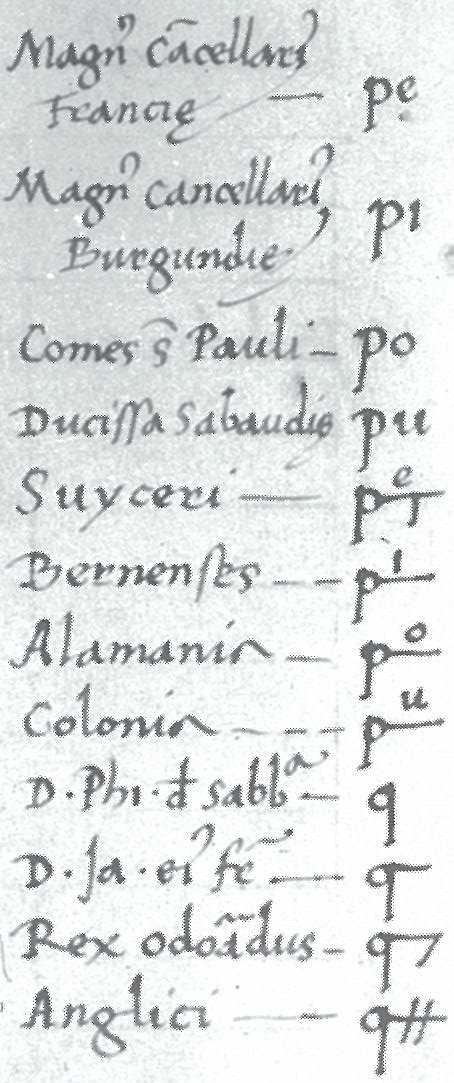 Magn᾽ Cācellari᾽
Francię — pe
Magn᾽ cancellari᾽
Burgundie pi
Comes S̄ Pauli — po
Ducissa Sabaudię pu
Suyceri — p
Bernenses — p
Alamania — p
Colonia — p
D. Phi. d Sabbᵃ — q
D. Ja. ei᾽ fr̄ — q
Rex odoardus — q
Anglici — q